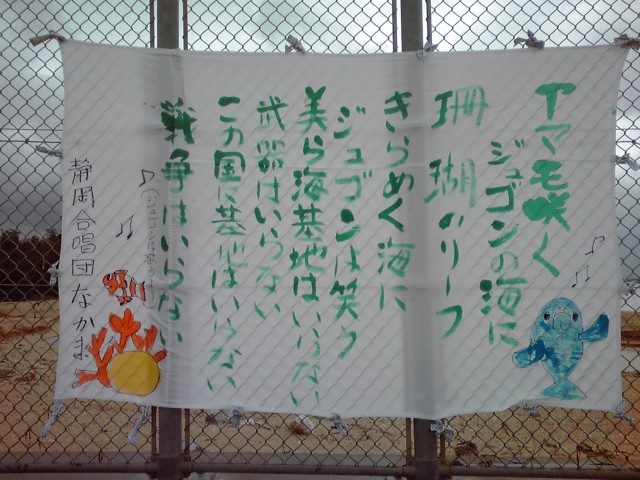 アマモ咲く
ジュゴンの海に
珊瑚のリーフ
きらめく海に
ジュゴンは笑う
美ら海基地はいらない
武器はいらない
この国に基地はいらない
戦争はいらない
静岡合唱団なかま